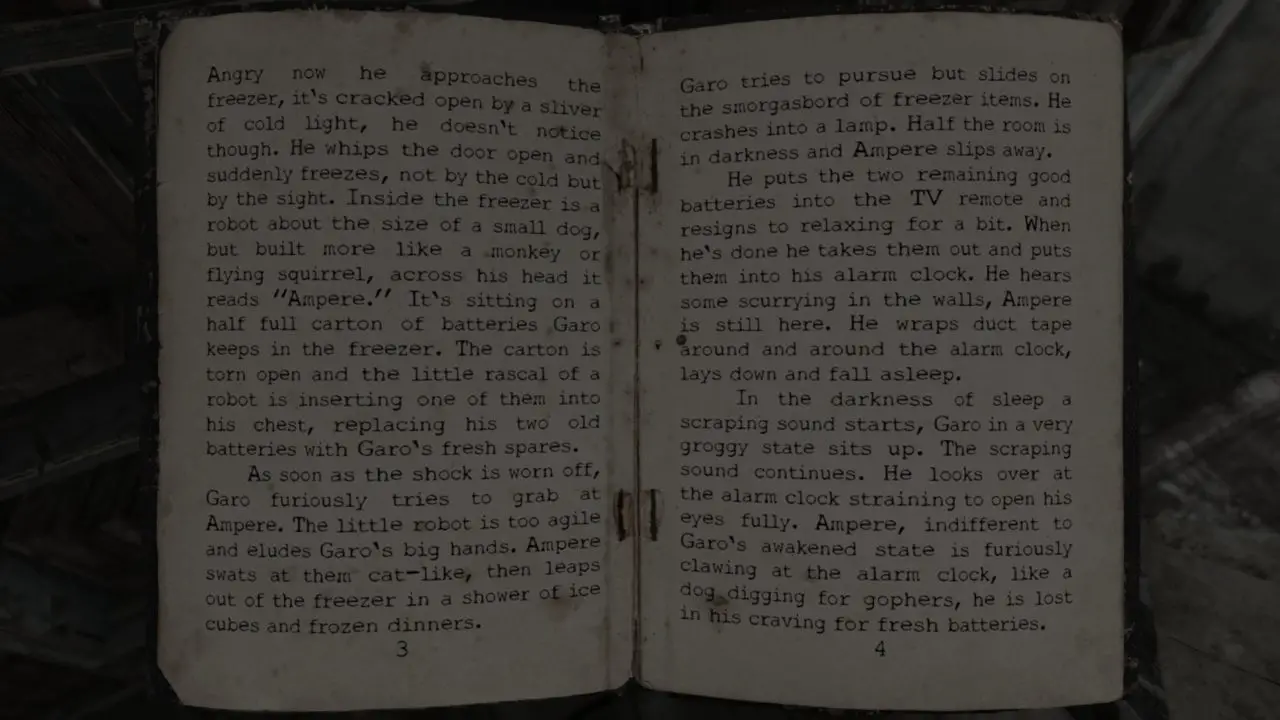 Angry now he approaches the
freezer, it's cracked open by a sliver
of cold light, he doesn't notice
though. He whips the door open and
suddenly freezes, not by the cold but
by the sight. Inside the freezer is a
robot about the size of a small dog,
but built more like a monkey or
flying squirrel, across his head it
reads "Ampere." It's sitting on a
half full carton of batteries Garo
keeps in the freezer. The carton is
torn open and the little rascal of a
robot is inserting one of them into
his chest, replacing his two old
batteries with Garo's fresh spares.
As soon as the shock is worn off,
Garo furiously tries to grab at
Ampere. The little robot is too agile
and eludes Garo's big hands. Ampere
swats at them cat-like, then leaps
out of the freezer in a shower of ice
cubes and frozen dinners.
3
Garo tries to pursue but slides on
the smorgasbord of freezer items. He
crashes into a lamp. Half the room is
in darkness and Ampere slips away.
He puts the two remaining good
batteries into the TV remote and
resigns to relaxing for a bit. When
he's done he takes them out and puts
them into his alarm clock. He hears
some scurrying in the walls, Ampere
is still here. He wraps duct tape
around and around the alarm clock,
lays down and fall asleep.
In the darkness of sleep a
scraping sound starts, Garo in a very
groggy state sits up. The scraping
sound continues. He looks over at
the alarm clock straining to open his
eyes fully. Ampere, indifferent to
Garo's awakened state is furiously
clawing at the alarm clock, like a
dog digging for gophers, he is lost
in his craving for fresh batteries.
4